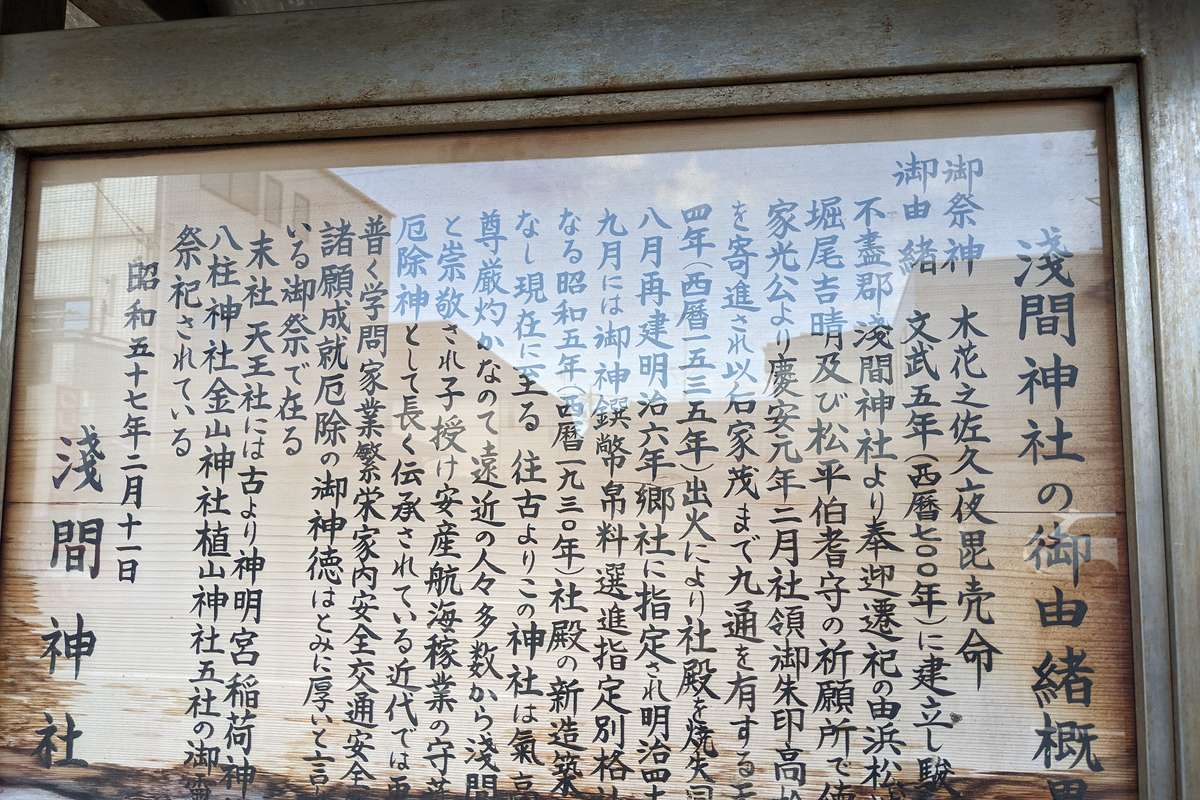 淺間神社の御由緒概
御祭神 木花之佐久夜毘売命
御由緒 文武五年（西暦七〇〇年）に建立し駿
不盡郡 淺間神社より奉迎遷祀の由浜松
堀尾吉晴及び松平伯耆守の祈願所で徳
家光公より慶安元年二月社領御朱印高
を寄進され以后家茂まで九通を有する
四年（西暦一五三五年）出火により社殿を焼失
八月再建明治六年郷社に指定され明治四
九月には御神饌幣帛料選進指定別格社
なる昭和五年（西暦一九三〇年）社殿の新造築
なし現在に至る 往古よりこの神社は氣高
尊厳灼かなので遠近の人々多数から淺間
と崇敬され子授け安産航海稼業の守
厄除神として長く伝承されている近代では
普く学問家業繁栄家内安全交通安全
諸願成就厄除の御神徳はとみに厚いと言
いる御祭で在る
末社 天王社には古より神明宮稲荷神
八柱神社金山神社植山神社五社の御
祭祀されている
昭和五十七年二月十一日
淺間神社